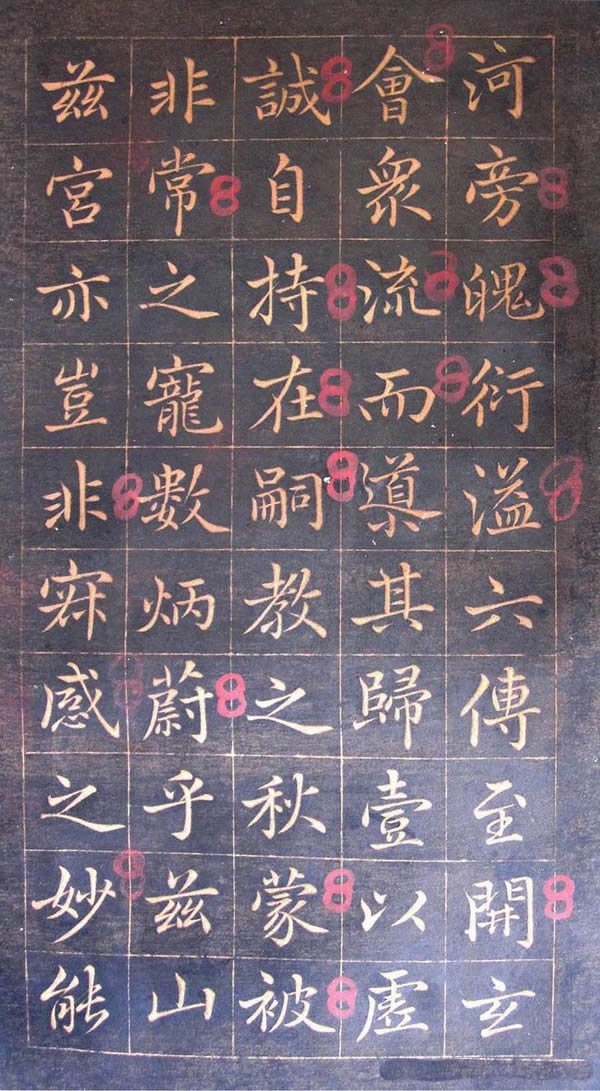 河旁魄衍溢六傳至開玄
會眾流而渠其歸壹以虛
誠自持在嗣教之秋蒙被
非常之寵數炳蔚乎茲山
茲宮亦豈非寂感之妙能